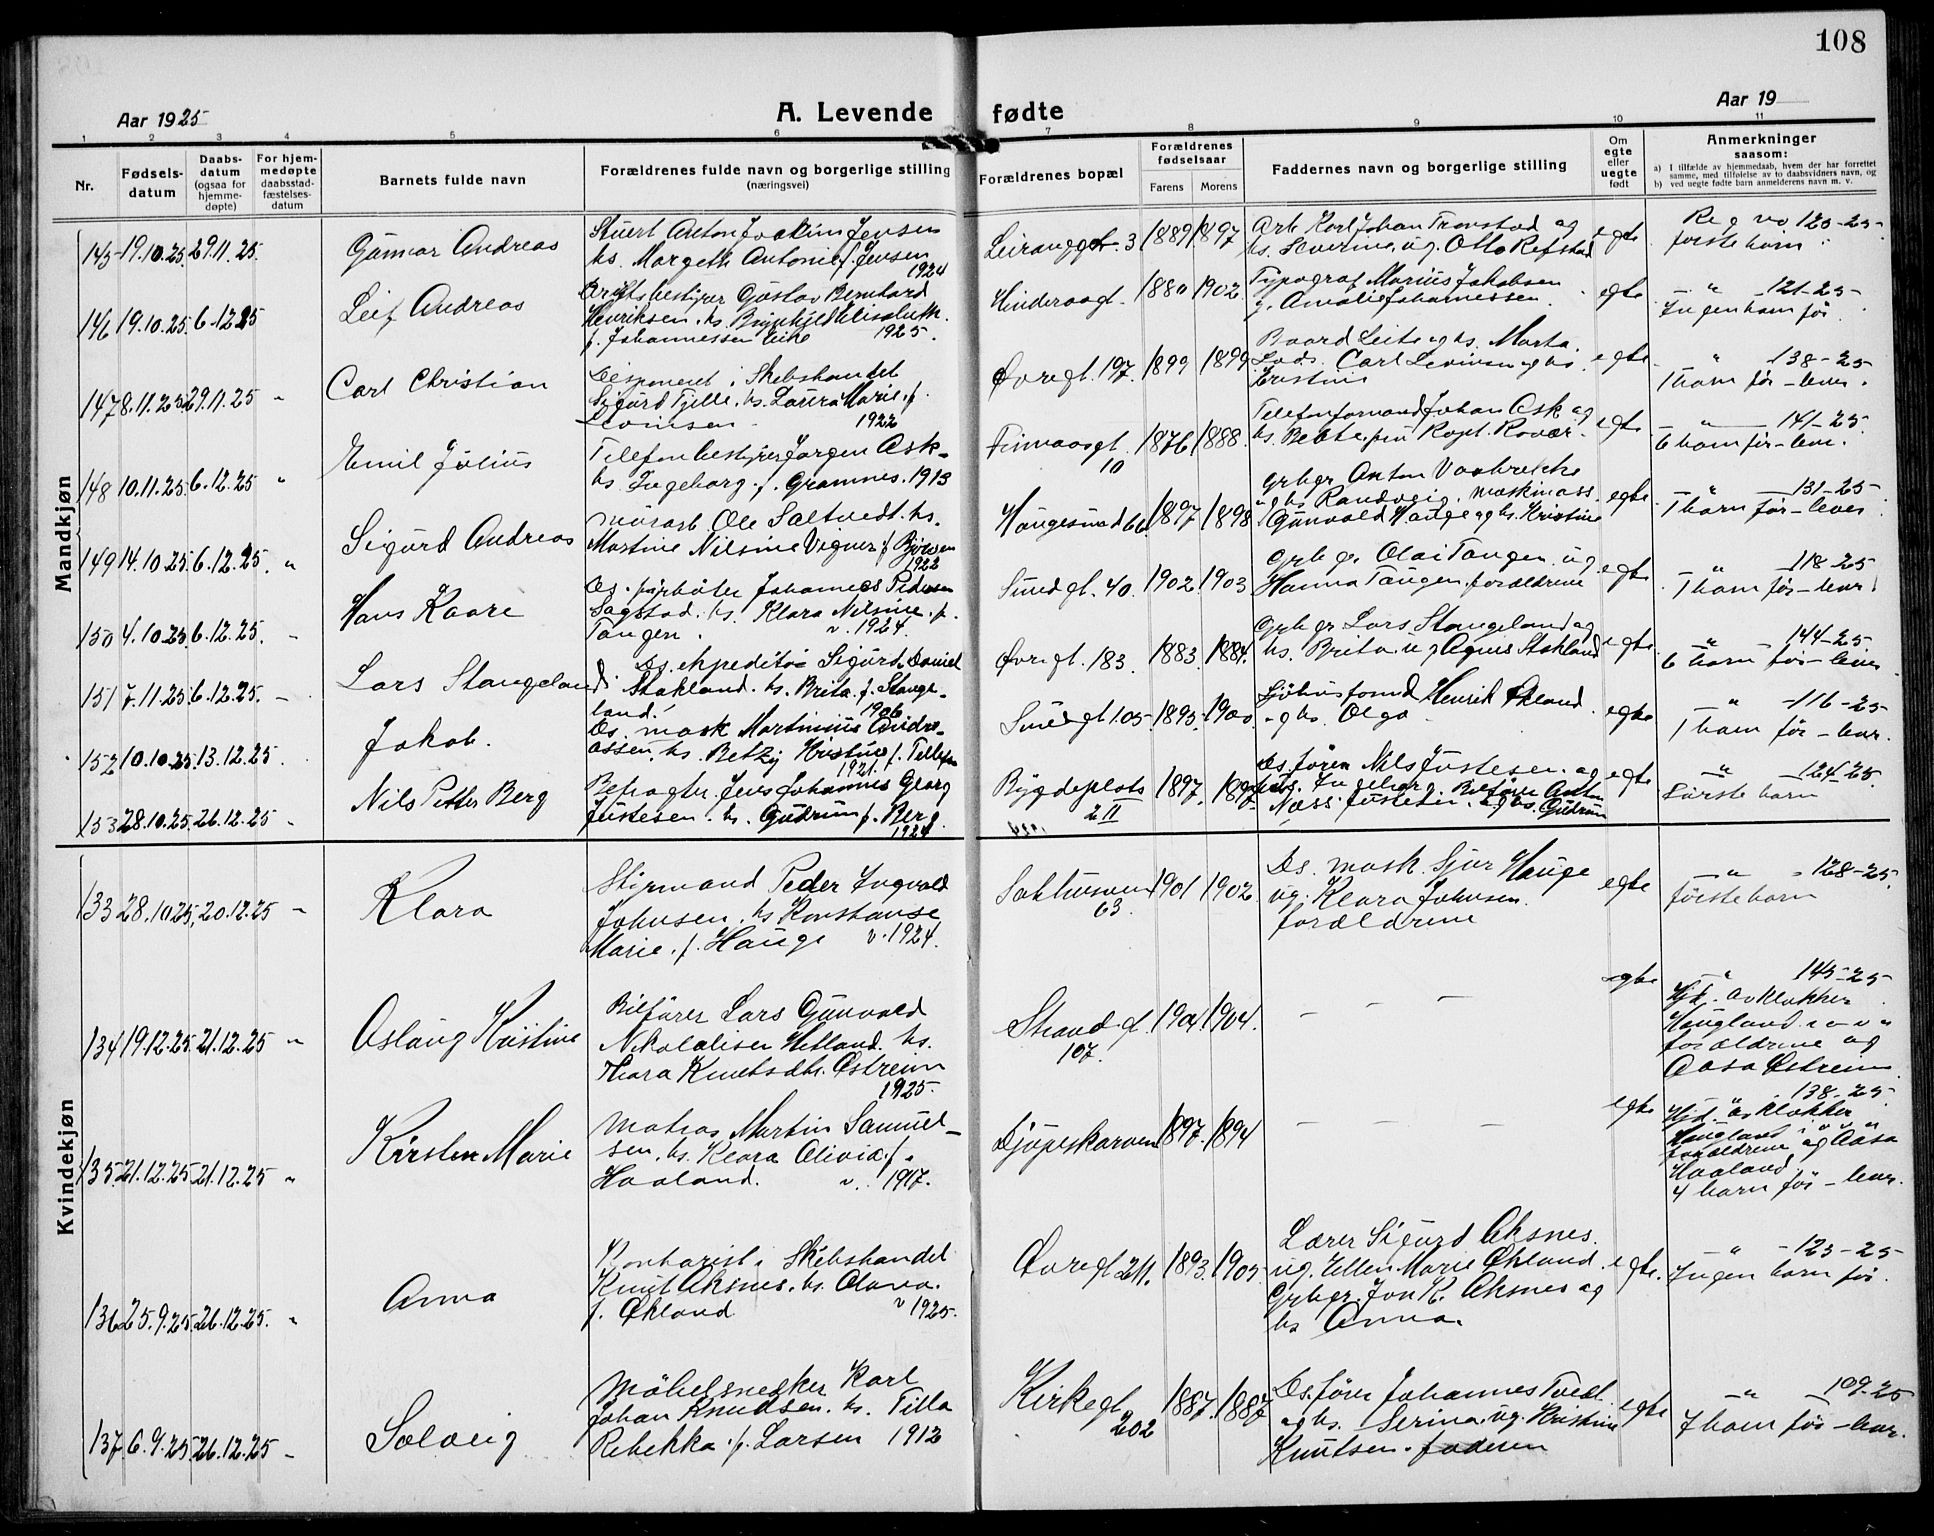 108
Aar 1925
A. Levende fødte
Aar 19
1 2 3 4 5 6 7 8 9 10 11
Nr.
Fødsels-
datum
Daabs-
datum
(ogsaa for
hjemme-
døpte)
For hjem-
medøpte
daabsstad-
fæstelses-
datum
Barnets fulde navn
Forældrenes fulde navn og borgerlige stilling
(næringsvei)
Forældrenes bopæl
Forældrenes
fødselsaar
Farens Morens
Faddernes navn og borgerlige stilling
Om
egte
eller
uegte
født
Anmerkninger
saasom:
a) I tilfælde av hjemmedaab, hvem der har forrettet
samme, med tilføielse av to daabsvidners navn, og
b) ved uegte fødte barn anmelderens navn m. v.
Mandkjøn
145 19.10.25 29.11.25. Gunnar Andreas
Stuert Anton Joakim Jensen
hs. Margeth Antonie f. Jensen
1924
3 1889 1897
Arb. Karl Johan Tronstad og
hs. Severine, ug. Otto Refstad
egte
Reg no 123-25-
første barn
146 19.10.25. 6.12.25 Leif Andreas
Gustav Bernhard
Henriksen. hs. Elisabeth
f. Johannessen Eike 1925.
Hinderaagt. 1880 1902
Typograf Marius Jakobsen
g. Amalie Johannessen.
egte
— " — 121-25-
Ingen barn før.
147 8.11.25 29.11.25 " Carl Christian
Disponent i Skibshandel
Sigurd Tjelle. hs. Laura Marie. f.
Levinsen 1922
Øvregt. 197. 1899 1899
Baard Leite og hs. Marta.
Lods. Carl Levinsen og hs.
Kristine
egte
" 138-25
1 barn før – lever.
148 10.11.25. 6.12.25 " Emil Julius
Telefonbestyrer Jørgen Ask
hs. Ingeborg. f. Gramnes. 1913
10 1876 1888.
Telefonformand Johan Ask og
hs. Berte. fru Kapt. Rovær.
egte
— " — 141-25.
6 barn før – lever.
149 14.10.25. 6.12.25. " Sigurd Andreas
Murarb. Ole Saltvedt. hs.
Martine Nilsine Vegner f.
1922
Haugesund 66. 1897 1898
Grbgr Anton Vaabrekke
og hs Randveig. Maskinass.
Gunvald Hauge og hs. Kristine
egte
— " — 131-25-
1 barn før – lever
150 4.10.25. 6.12.25. " Hans Kaare
Ds. fyrbøter Johannes Pedersen
Sagstad. hs. Klara Nilsine. f.
Tangen. v. 1924.
Smedgt. 40. 1902. 1903
Grbgr. Olai Tangen ug.
Hanna Tangen. forældrene
egte
" 118-25
1 barn før – lever.
151 7.11.25 6.12.25. – Lars Stangeland
Ds. ekspeditør Sigurd Daniel
Stakland. hs. Brita f. Stange-
land. 1906
Øvregt. 183. 1883. 1884.
Grbgr Lars Stangeland og
hs. Brita ug Agnes Stakland
egte
" – 144-25
6 barn før – lever
152 10.10.25. 13.12.25. Jakob.
Ds. mask Martinius Andre-
assen. hs. Betzy Kristine f. Tellefsen
1921.
Smedgt 105- 1893. 1900
Sjøhusformd Henrik Økland
og hs. Olga.
egte
— " — 116-25
1 barn før – lever.
153 28.10.25. 26.12.25 " Nils Petter Berg
Befragter. Jens Johannes Georg
Justesen. hs. Gudrun f. Berg.
1924
Bygdeplads
2 II 1897.
Ds. fører Nils Justesen. og
hs. Ingeborg. Bilfører Anton
Næss Justesen. og hs. Gudrun
egte
— " — 124-25.
Første barn
Kvindekjøn
133 28.10.25. 20.12.25 " Klara
Styrmand Peder Ingvald
Johnsen. hs Konstanse
Marie. f. Hauge v. 1924.
63. 1901 1902.
Ds. mask. Sjur Hauge
ug. Klara Johnsen.
forældrene
egte
— " — 128-25.
første barn
134 19.12.25. 21.12.25 " Aslaug Kristine
Bilfører Lars Gunvald
Nikolaisen Helland. hs.
Thora Knutsdtr. Østreim
1925.
Strandgt.
107. 1904 1904.
— — —
egte
— " 145-25
Hjd. av Klokker
Haugland i o v a
forældrene og
Aasa Østreim
135 21.12.25. 21.12.25 " Kirsten Marie
Matros Martin Samuel-
sen. hs. Klara Olivia. f.
Haaland. v. 1917.
Djupeskaroen 1897. 1894
— — —
egte
— 138-25-
Hjd. av Klokker
Haugland i o v a
forældrene og Aasa
Haaland.
4 barn før – lever.
136 25.9.25. 26.12.25. " Anna
Kontorist i Skibshandel
Knut Aksnes. hs. Olava.
f. Økland v 1925.
Øvregt 211. 1893. 1905.
Lærer Sigurd Aksnes.
ug. Ellen Marie Økland.
Grbgr. Jon K. Aksnes og
hs Anna.
egte.
— " — 123-25
Ingen barn før.
137. 6.9.25. 26.12.25 – Solveig
Møbelsnedker Karl
Johan Knudsen. hs. Tilla
Rebekka. f. Larsen 1912
Kirkegt.
202 1887. 1887
Ds. fører Johannes Tvedt
og hs. Serina. ug. Kristine
Knutsen. faderen
egte
— " — 109-25
7 barn før – lever.